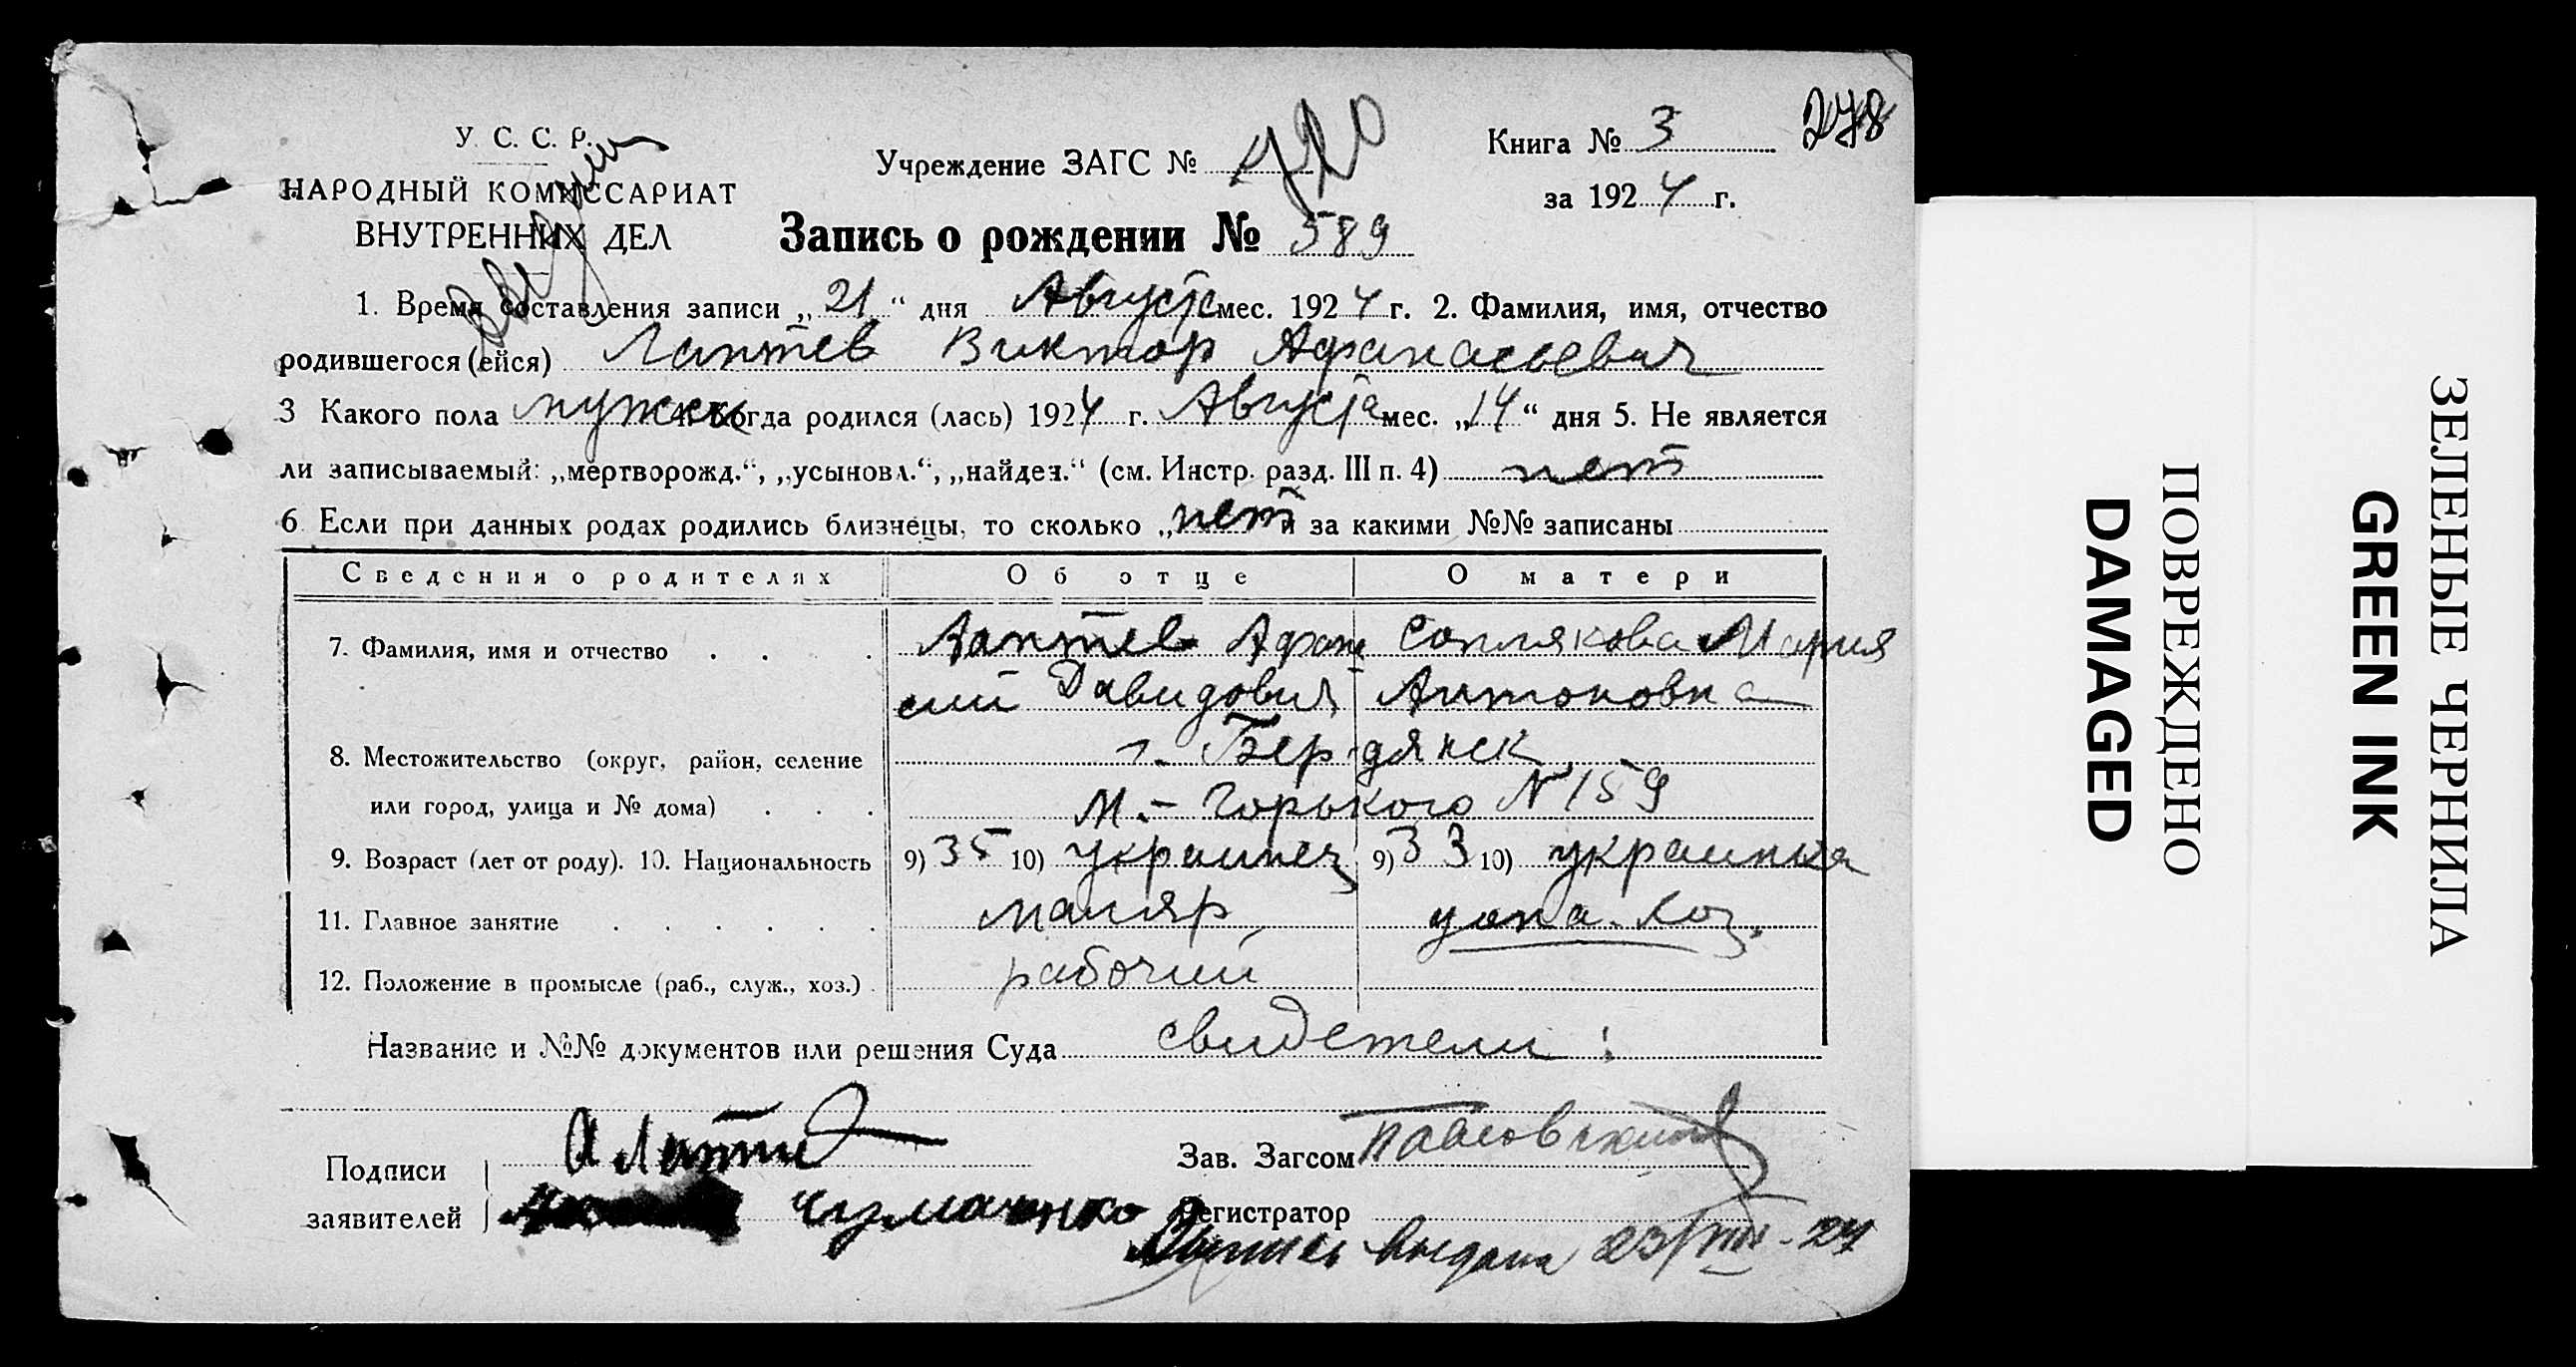 У. С. С. Р.
НАРОДНЫЙ КОМИССАРИАТ
ВНУТРЕННИХ ДЕЛ
Учреждение ЗАГС №
Книга № 3
278
за 1924 г.
Запись о рождении № 589
1. Время составления записи „21“ дня Августа мес. 1924 г. 2. Фамилия, имя, отчество
родившегося (ейся) Лаптев Виктор Афанасьевич
3 Какого пола мужск 4. Когда родился (лась) 1924 г. Августа мес. „14“ дня 5. Не является
ли записываемый: „мертворожд.“, „усыновл.“, „найден.“ (см. Инстр. разд. III п. 4) нет
6. Если при данных родах родились близнецы, то сколько „нет и за какими №№ записаны
Сведения о родителях Об отце О матери
7. Фамилия, имя и отчество Лаптев Афана Соплякова Мария
сий Давидович Антоновна
8. Местожительство (округ, район, селение г. Бердянск
или город, улица и № дома) М.-Горького N 159
9. Возраст (лет от роду). 10. Национальность 9) 35 10) украинец 9) 33 10) украинка
11. Главное занятие маляр дома. хоз.
12. Положение в промысле (раб., служ., хоз.) рабочий
Название и №№ документов или решения Суда свидетели:
Подписи А Лаптев Зав. Загсом Павловский
заявителей Чумаченко Регистратор
Выпись выдана 23/VIII-24
ПОВРЕЖДЕНО
DAMAGED
ЗЕЛЕНЫЕ ЧЕРНИЛА
GREEN INK